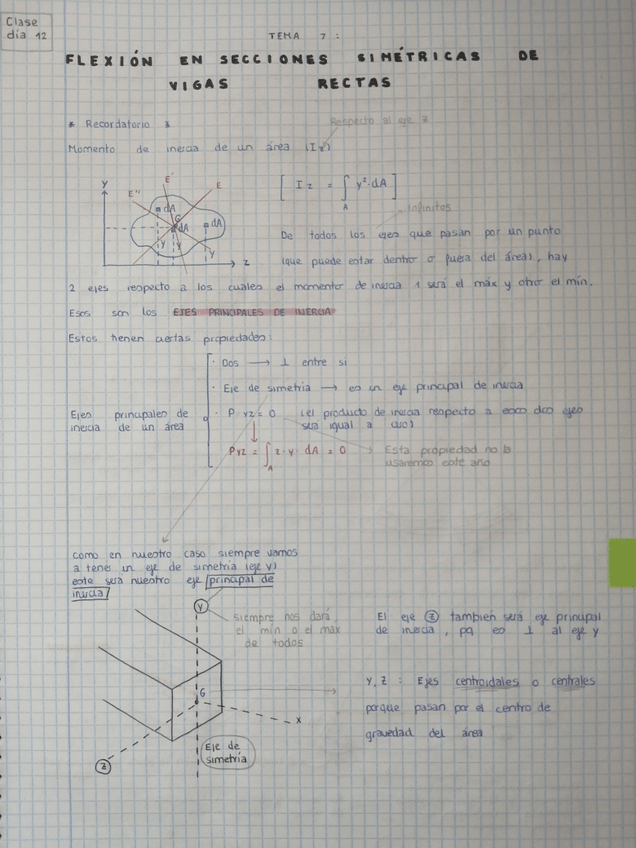 Clase
día 12
TEMA 7:
FLEXIÓN EN SECCIONES SIMÉTRICAS DE
VIGAS RECTAS
* Recordatorio *
Respecto al eje z
Momento de inercia de un área (Iz)
[ Iz = ∫A y²·dA ]
y
E''
E'
E
dA
G
dA
dA
y
y
y
z
Infinitos
De todos los ejes que pasan por un punto
(que puede estar dentro o fuera del área), hay
2 ejes respecto a los cuales el momento de inercia 1 será el máx y otro el mín.
Esos son los EJES PRINCIPALES DE INERCIA
Estos tienen ciertas propiedades:
· Dos → ⊥ entre si
· Eje de simetría → es un eje principal de inercia
Ejes principales de
inercia de un área
· P yz = 0 (el producto de inercia respecto a esos dos ejes
será igual a cero)
Pyz = ∫A z·y·dA = 0
Esta propiedad no la
usaremos este año
Como en nuestro caso siempre vamos
a tener un eje de simetría (eje y)
este será nuestro eje principal de
inercia
y
Siempre nos dará
el mín o el máx
de todos
El eje z también será eje principal
de inercia, pq es ⊥ al eje y
G
x
z
Eje de
simetría
Y, Z : Ejes centroidales o centrales
porque pasan por el centro de
gravedad del área